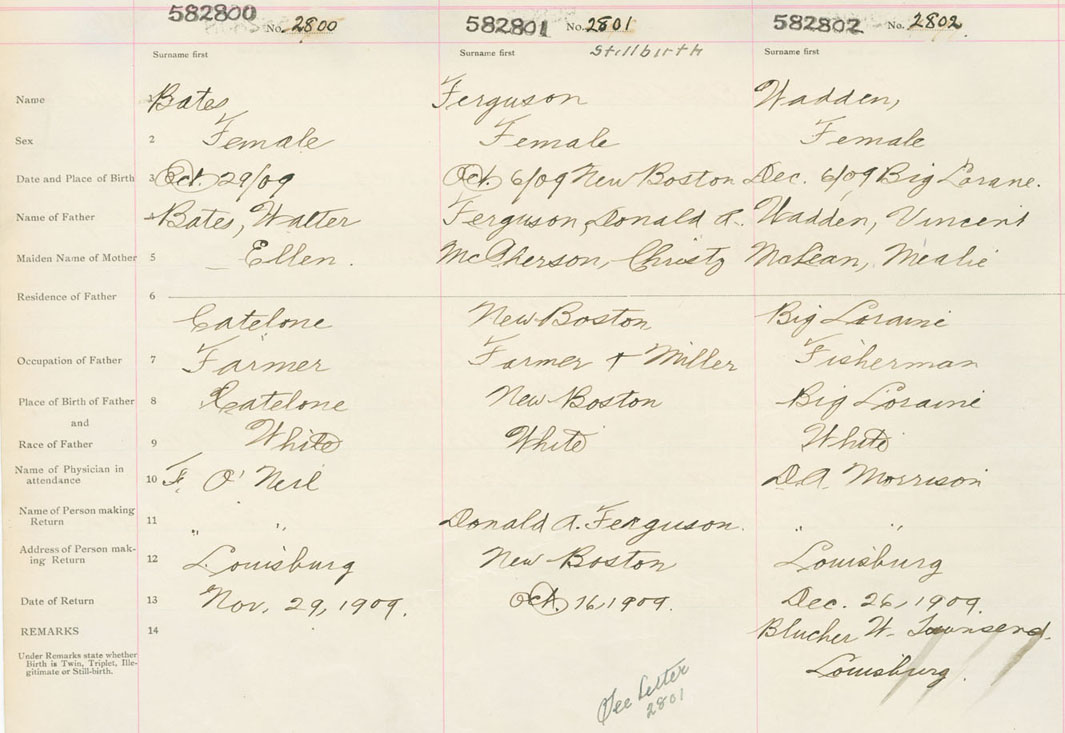 582800 No. 2800 582801 No. 2801 582802 No. 2802
Stillbirth
Surname first Surname first Surname first
Name 1 Bates Ferguson Wadden,
Sex 2 Female Female Female
Date and Place of Birth 3 Oct. 29/09 Oct. 6/09 New Boston Dec. 6/09 Big Lorane.
Name of Father 4 Bates, Walter Ferguson, Donald A. Wadden, Vincent
Maiden Name of Mother 5 — Ellen. McPherson, Christy McLean, Mealie
Residence of Father 6
Catelone New Boston Big Loraine
Occupation of Father 7 Farmer Farmer + Miller Fisherman
Place of Birth of Father 8 Catelone New Boston Big Loraine
and
Race of Father 9 White White White
Name of Physician in
attendance 10 F. O'Neil D.A. Morrison
Name of Person making
Return 11 " " Donald A. Ferguson. " "
Address of Person mak-
ing Return 12 Louisburg New Boston Louisburg
Date of Return 13 Nov. 29, 1909. Oct. 16, 1909. Dec. 26, 1909.
REMARKS 14 Blucher W. Townsend.
Under Remarks state whether
Birth is Twin, Triplet, Ille-
gitimate or Still-birth.
Louisburg.
See Letter
2801